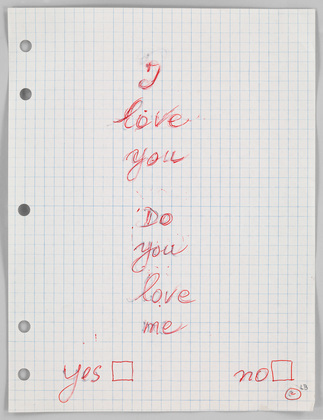 I
love
you
Do
you
love
me
yes no